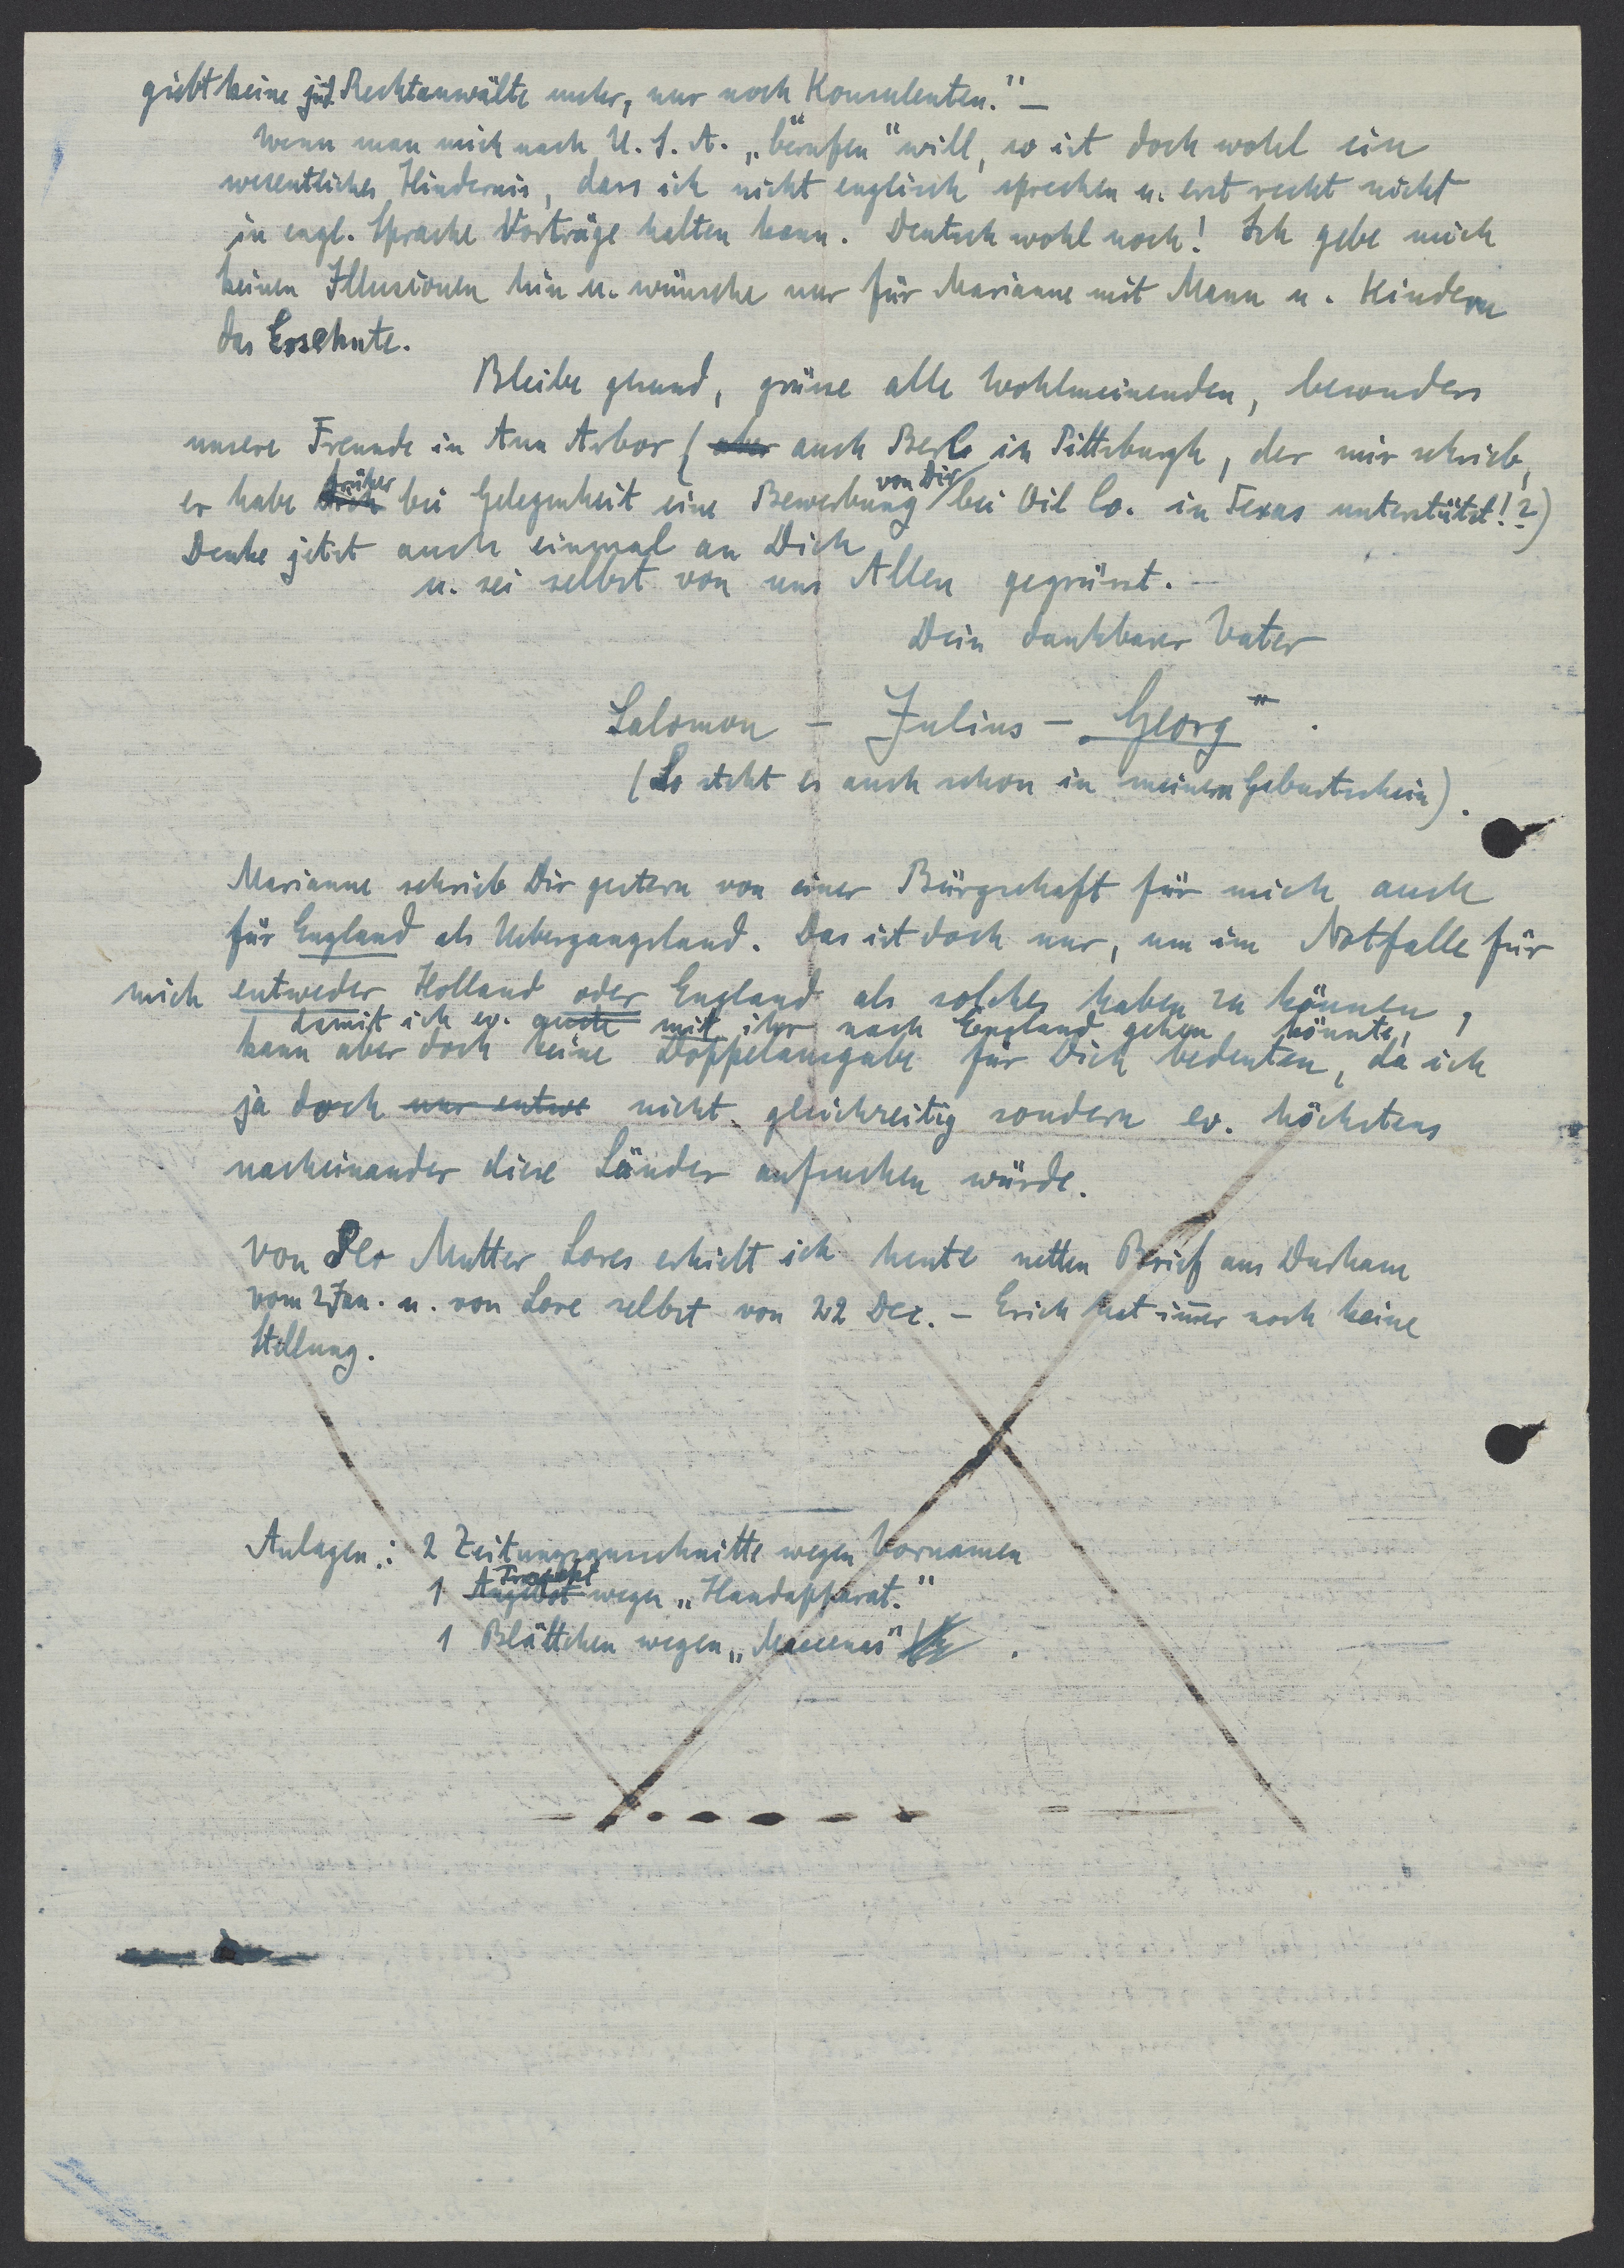 giebt keine jüd. Rechtanwälte mehr, nur noch Konsulenten." —
Wenn man mich nach U.S.A. „berufen" will, so ist doch wohl ein
wesentliches Hindernis, dass ich nicht englisch sprechen u. erst recht nicht
in engl. Sprache Vorträge halten kann. Deutsch wohl noch! Ich gebe mich
keinen Illusionen hin u. wünsche nur für Marianne mit Mann u. Kindern
das Ersehnte.
Bleibe gesund, grüsse alle Wohlmeinenden, besonders
unsere Freunde in Ann Arbor (aber auch Berl in Pittsburgh, der mir schrieb,
er habe früher bei Gelegenheit eine Bewerbung von Dir bei Oil Co. in Texas unterstützt!?)
Denke jetzt auch einmal an Dich
u. sei selbst von uns Allen gegrüsst.
Dein dankbarer Vater
Salomon - Julius - Georg".
(So steht es auch schon in meinem Geburtschein).
Marianne schrieb Dir gestern von einer Bürgschaft für mich auch
für England als Uebergangsland. Das ist doch nur, um im Notfalle für
mich entweder Holland oder England als solches haben zu können,
damit ich ev. mit ihr nach England gehen könnte,
kann aber doch keine Doppelausgabe für Dich bedeuten, da ich
ja doch nur entwe nicht gleichzeitig sondern ev. höchstens
nacheinander diese Länder aufsuchen würde.
Von der Mutter Lores erhielt ich heute netten Brief aus Durham
vom 2 Jan. u. von Lore selbst von 22 Dez. - Erich hat im̄er noch keine
Stellung.
Anlagen: 2 Zeitungsausschnitte wegen Vornamen
1 Angebot wegen „Handapparat."
1 Blättchen wegen „Maecenas" .